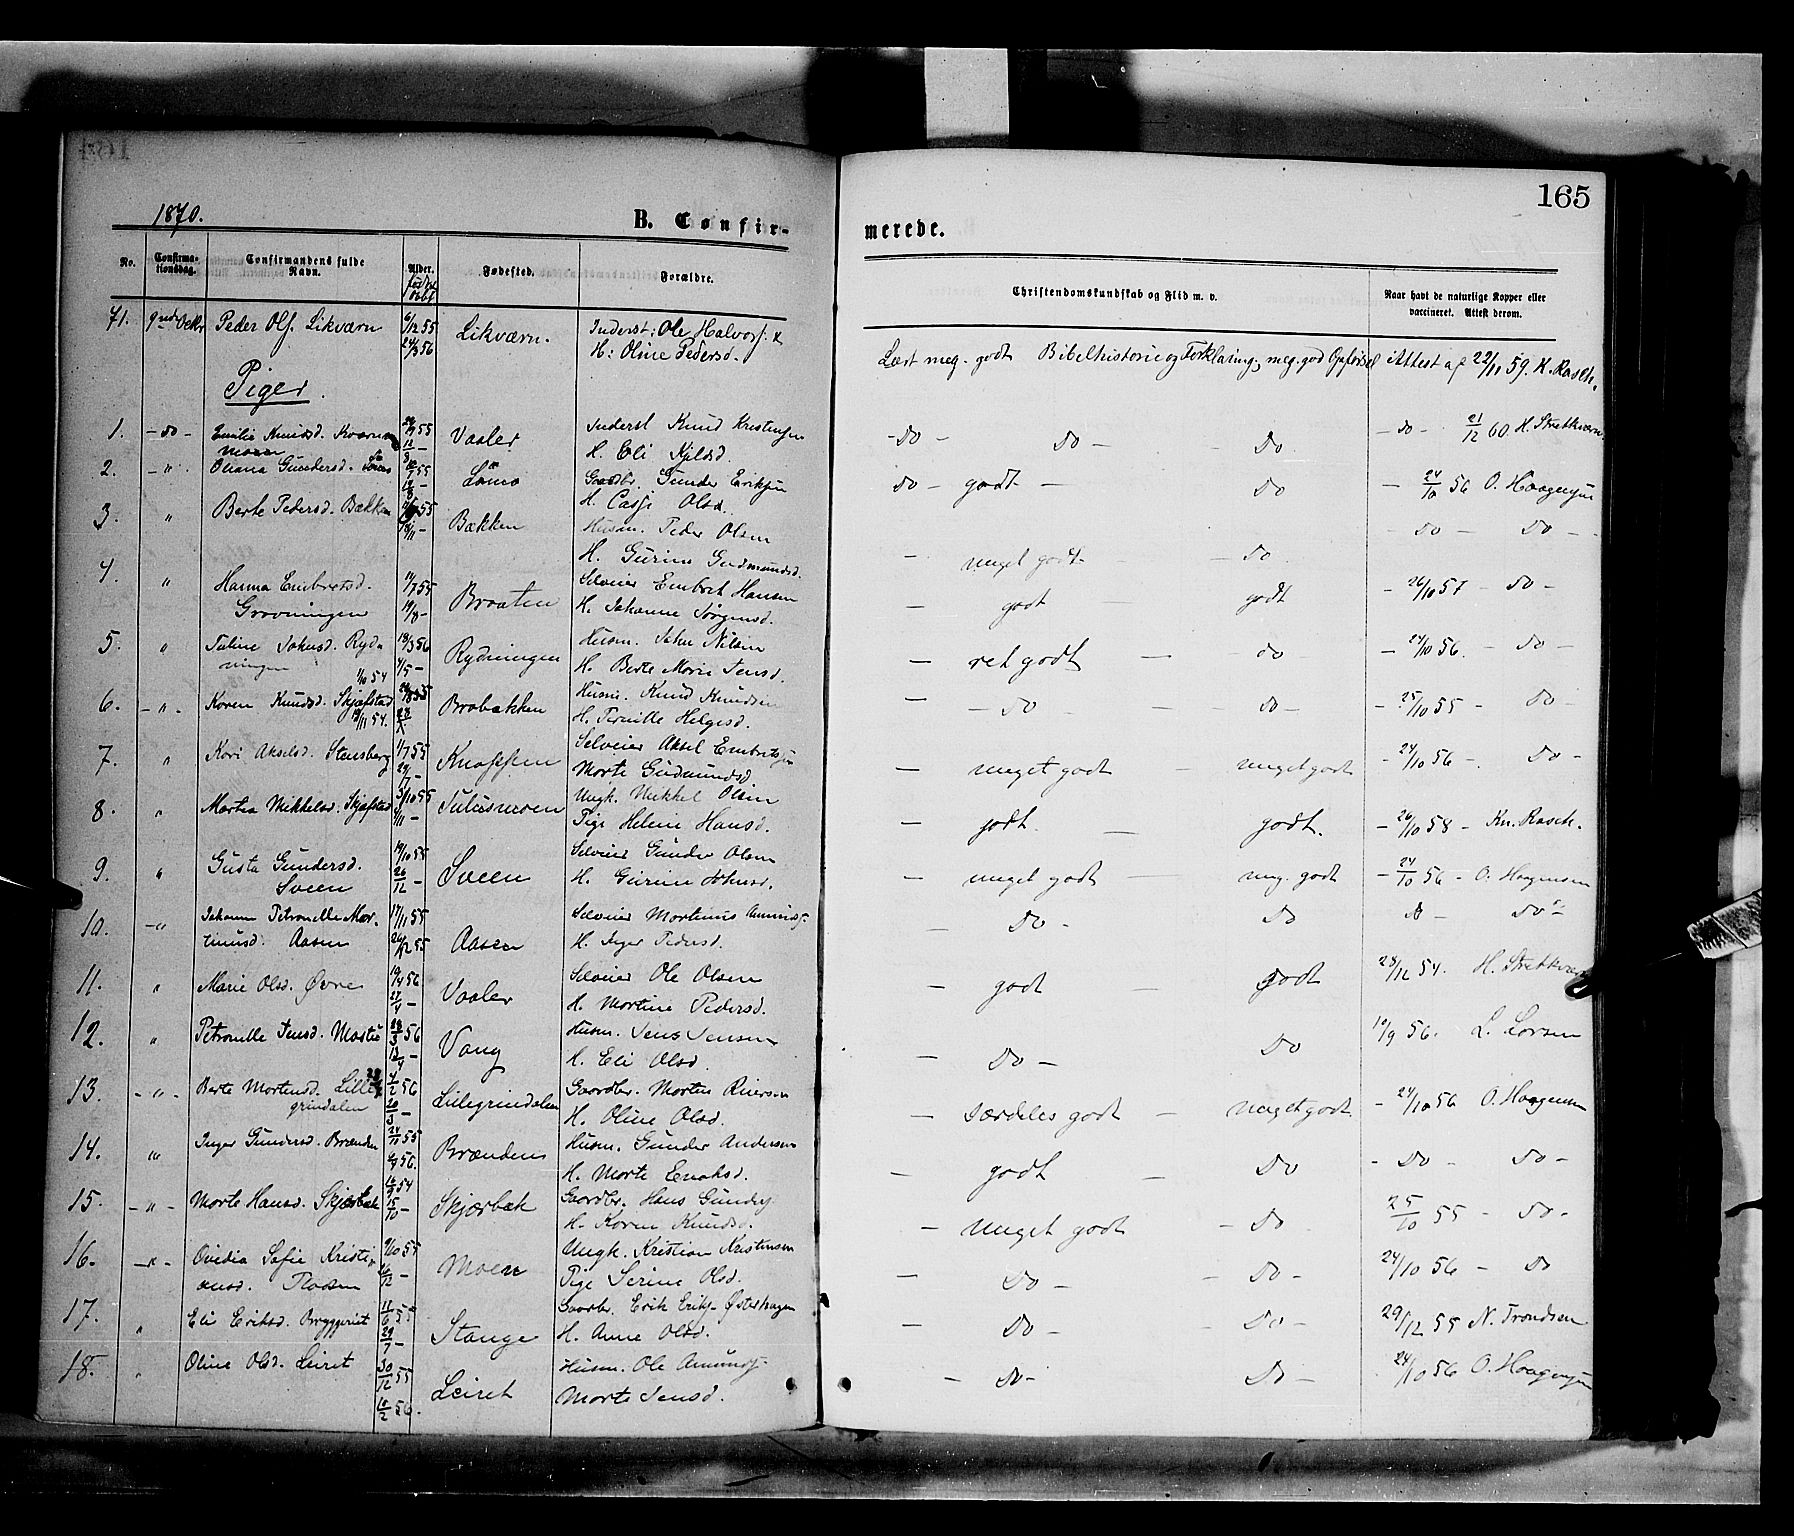 165
1870.
B. Confir-
merede.
No.
Confirma-
tionsdag.
Confirmandens fulde
Navn.
Alder.
født
døbt
Fødested.
Forældre.
Christendomskundskab og Flid m. v.
Naar havt de naturlige Kopper eller
vaccineret. Attest derom.
71. 9nde Octbr Peder Ols. Likværn 6/12 55 Likværn. Inderst: Ole Halvors. &
24/3 56 H: Oline Pedersd.
Lært meg. godt Bibelhistorie og Forklaring, meg. god Opførsel Attest af 22/11 59. K. Rasch.
Piger.
1. - do - Emilie Knudsd. Vaaler Inderst Knud Kristensen
H. Eli Kjelsd.
- do - do - do - - do - 21/12 60. H. Strætkværn
2. - " Oliana Gundersd. Lømo Gaardbr. Gunder Eriksen
H. Olsd.
do - godt - do - 24/10 56 O. Haagensen
3. " Berte Pedersd. Bækken Bækken Husm. Peder Olsen
H. Gurine Gudmundsd.
- meget godt - do - do - do -
4. " Hanna Embretsd. 14/7 55 Braaten Selveier Embret Hansen
Grovningen 19/8 - H. Johanne Jørgensd.
- godt - godt - 26/10 57 - do -
5. " Juline Johnsd. Ryd- 18/3 56 Rydningen Husm. John Nilsen
ningen 4/5 - H. Berte Marie Jensd.
- ret godt - do - 24/10 56. - do -
1/10 54
6. - " - Karen Knudsd. Skjæfstad Brobakken Husm. Knud Knudsen
12/11 54. H. Pernille Helgesd.
- do - do - - 25/10 55 - do -
7. " Kari Akselsd. Stensberg 1/7 55 Knappen Selveier Aksel Embretsen
29/7 - Marte Gudmundsd.
- meget godt - meget godt - 24/10 56 -. do -
8. " Martea Mikkelsd. Skjæfstad 5/10 55 Juliusmoen Ungk. Mikkel Olsen
4/11 - Pige Helene Hansd.
- godt. - godt. - 26/10 58 - Kn. Rasch.
9. " Gusta Gundersd. 19/10 55 Sveen Selveier Gunder Olsen
Sveen 26/12 - H. Gurine Johnsd.
- meget godt - meg. godt - 24/10 56 - O. Haagensen
10. - " Johanne Petronelle Mar- 17/11 55 Aasen Selveier Martinus Amunds.
tinusd. Aasen 26/12 55 H. Inger Pedersd.
- do - do do - do -
11. " Marie Olsd. Øvre 19/4 56 Vaaler Selveier Ole Olsen
27/4 - H. Martine Pedersd.
- godt - godt 28/12 54. H. Strætkværn
12. " Petronelle Jensd. Vang Husm. Jens Jensen
H. Eli Olsd.
- do - do 19/9 56. L. Larsen
13. - " - Berte Mortensd. Lille- 4/2 56 Lillegrindalen Gaardbr. Morten Iversen
grindalen 20/3 - H. Oline Olsd.
- særdeles godt - meget godt. - 24/10 56 O. Haagensen
14. " Inger Gundersd. Brænden 24/11 55 Brænden Husm. Gunder Andersen
56. H. Marte Enoksd.
- godt - do - do - do -
15. - " - Marte Hansd. Skjærbæk 54 Skjærbæk Gaardbr. Hans Gunders.
15/10 - H. Karen Knudsd.
- meget godt - do - 25/10 55 - do -
16. - " - Ovidia Sofie Kristi- 9/10 55 Moen Ungk. Kristian Kristensen
ansd. Floden 26/12 - Pige Serine Olsd.
- do - - do - 24/10 56 - do
17. " Eli Eriksd. Bryggeriet 11/6 55 Stange Gaardbr. Erik Eriks. Østerhagen
29/7 - H. Anne Olsd.
- do - - do - 29/12 55 N. Trondsen
18. " Oline Olsd. Leiret 30/12 55 Leiret Husm. Ole Amunds.
10/2 56. Marte Jensd.
- do - do - 24/10 56 O. Haagensen